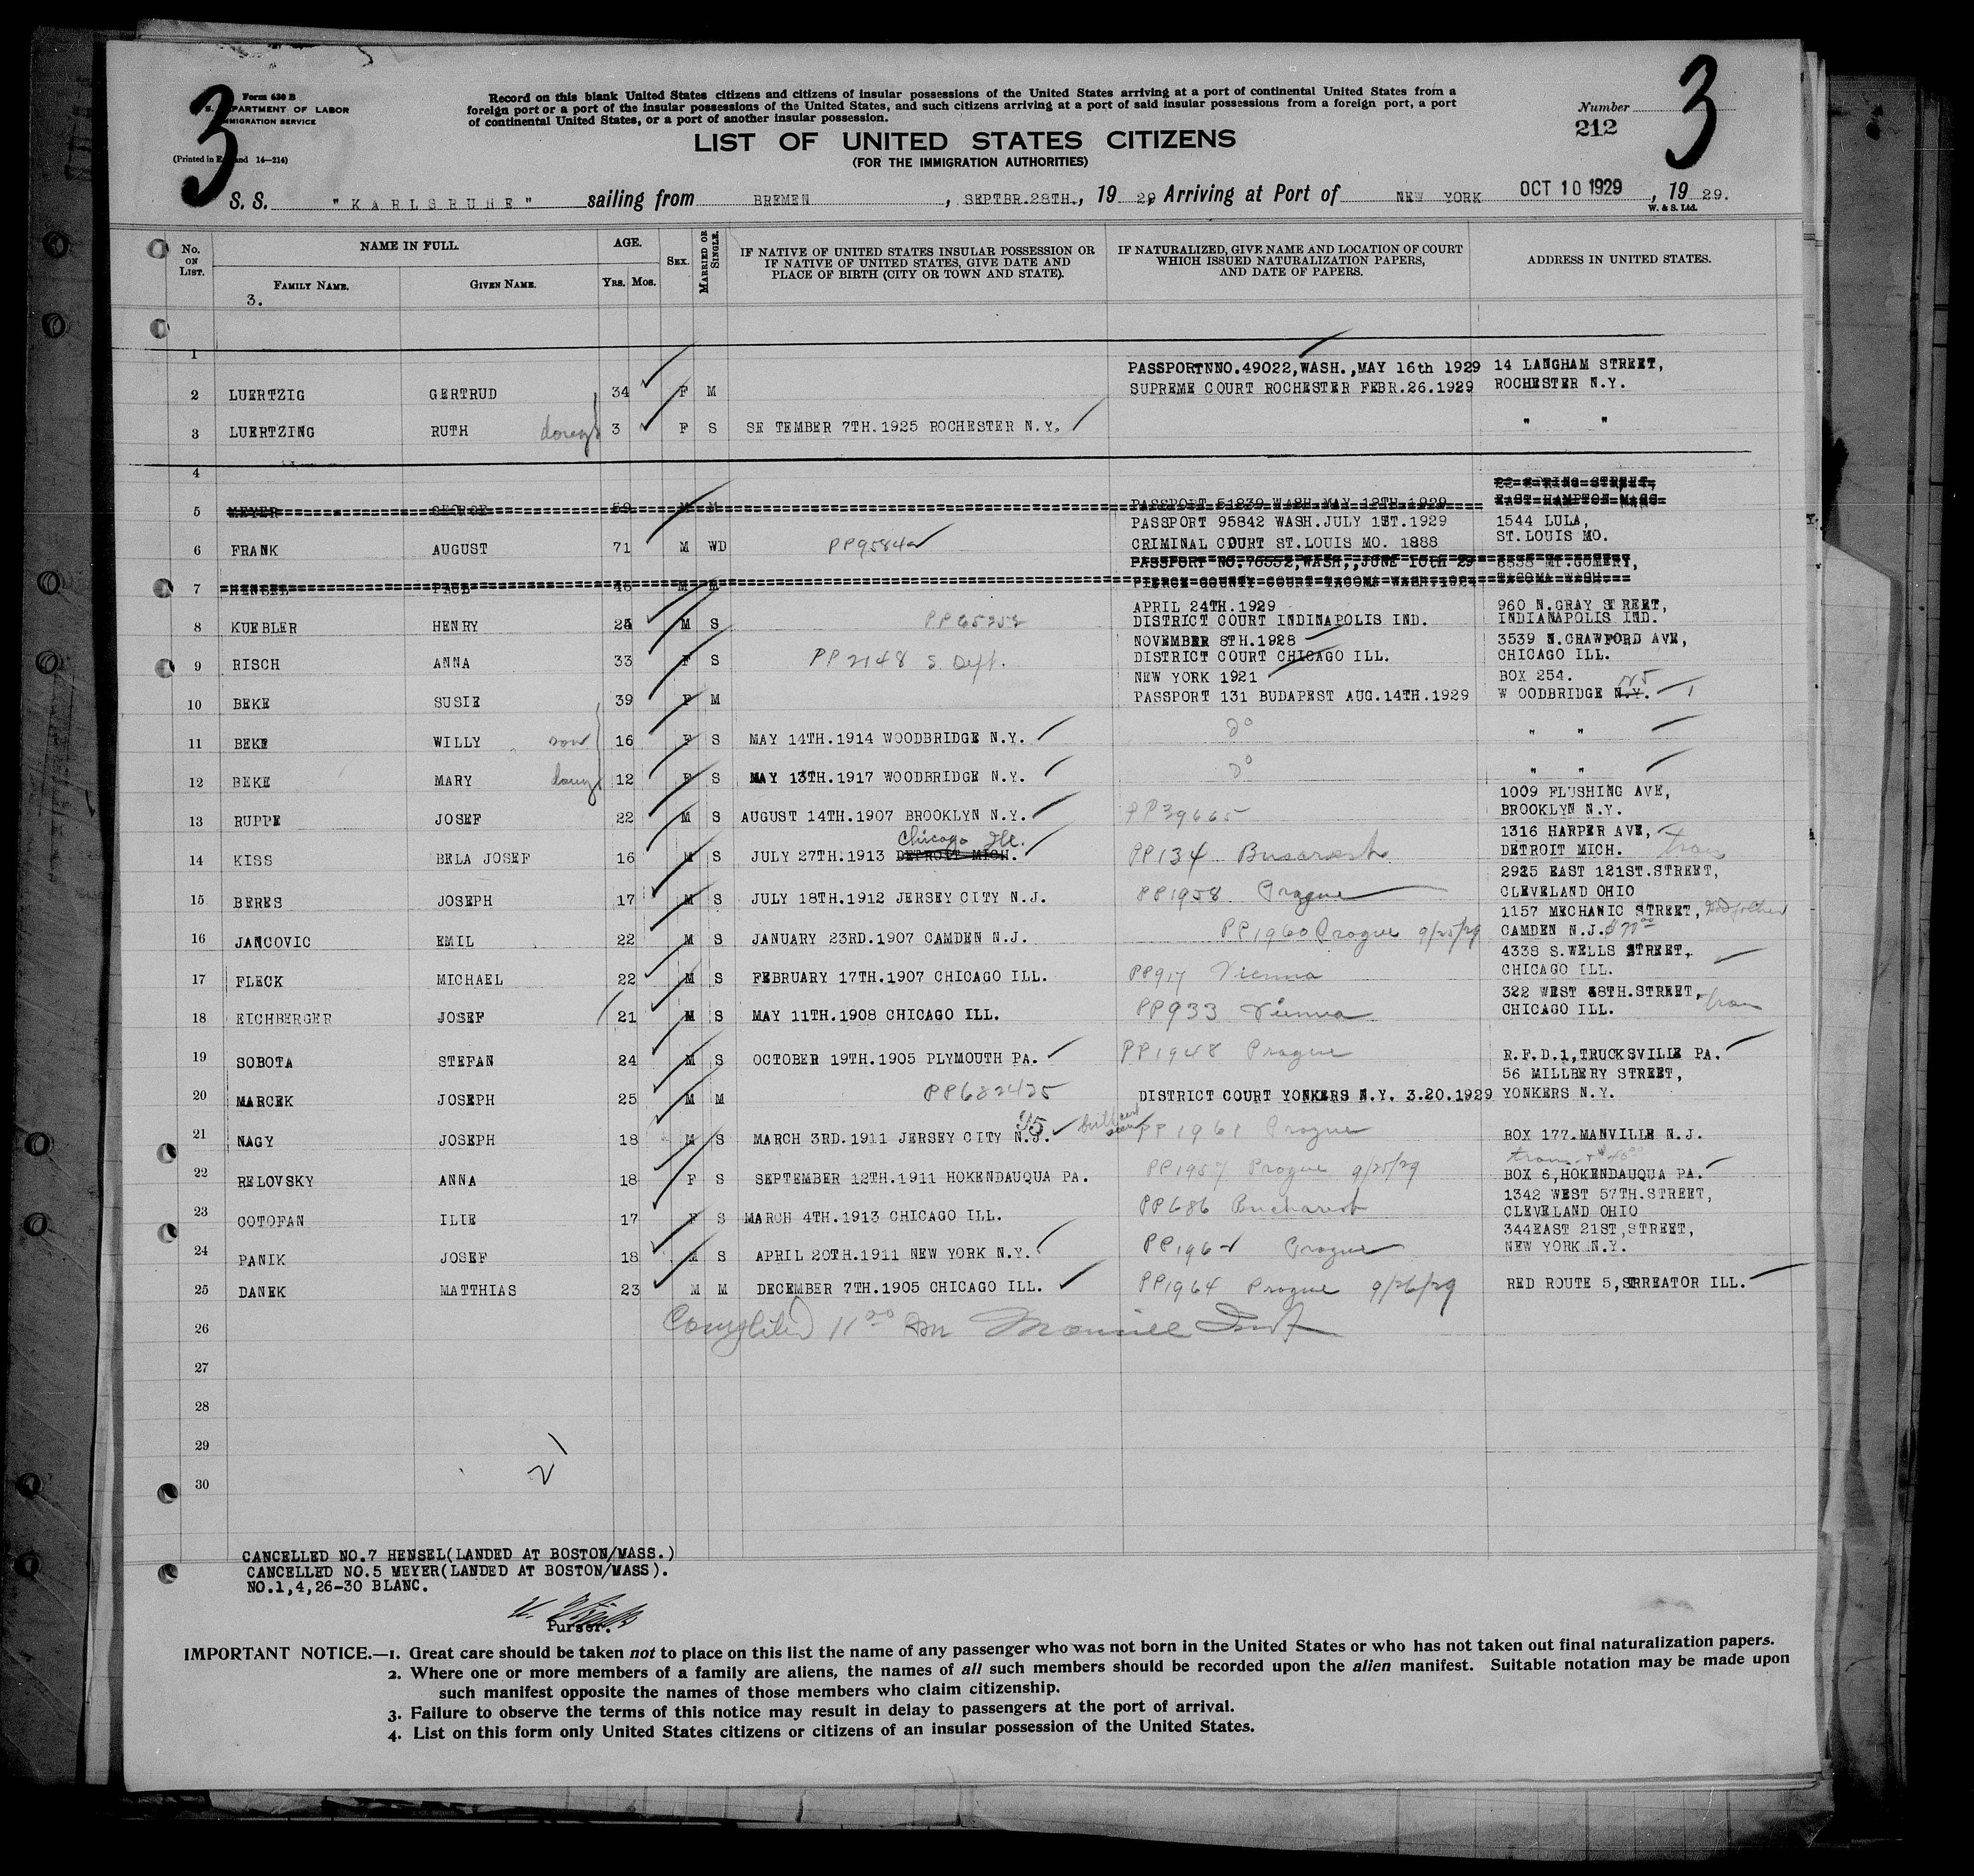 3
Form 630 B
U. S. DEPARTMENT OF LABOR
IMMIGRATION SERVICE
(Printed in England 14—214)
Record on this blank United States citizens and citizens of insular possessions of the United States arriving at a port of continental United States from a
foreign port or a port of the insular possessions of the United States, and such citizens arriving at a port of said insular possessions from a foreign port, a port
of continental United States, or a port of another insular possession.
Number
212
3
LIST OF UNITED STATES CITIZENS
(FOR THE IMMIGRATION AUTHORITIES)
S. S. "KARLSRUHE" sailing from BREMEN, SEPTBR.28TH., 19 29, Arriving at Port of NEW YORK OCT 10 1929, 19 29.
W. & S. Ltd.
No. ON LIST. NAME IN FULL. AGE. SEX. MARRIED OR SINGLE. IF NATIVE OF UNITED STATES INSULAR POSSESSION OR IF NATIVE OF UNITED STATES, GIVE DATE AND PLACE OF BIRTH (CITY OR TOWN AND STATE). IF NATURALIZED, GIVE NAME AND LOCATION OF COURT WHICH ISSUED NATURALIZATION PAPERS, AND DATE OF PAPERS. ADDRESS IN UNITED STATES.
FAMILY NAME. GIVEN NAME. Yrs. Mos.
3.
1
PASSPORTNNO.49022,WASH.,MAY 16th 1929 14 LANGHAM STREET,
2 LUERTZIG GERTRUD 34 F M SUPREME COURT ROCHESTER FEBR.26.1929 ROCHESTER N.Y.
3 LUERTZING RUTH 3 F S SE TEMBER 7TH.1925 ROCHESTER N.Y. " "
4
EAST HAMPTON MASS
5 MEYER GEORGE 59 M M PASSPORT 51839 WASH MAY 12TH 1929
PASSPORT 95842 WASH.JULY 1ST.1929 1544 LULA,
6 FRANK AUGUST 71 M WD PP95842 CRIMINAL COURT ST.LOUIS MO. 1888 ST.LOUIS MO.
PASSPORT NO.76552,WASH,,JUNE 10th 29 6838 MT.GOMERY,
7 HENSEL PAUL 48 M M PIERCE COUNTY COURT TACOMA WASH.1924 TACOMA WASH.
APRIL 24TH.1929 960 N.GRAY STREET,
8 KUEBLER HENRY M S PP65252 DISTRICT COURT INDINAPOLIS IND. INDIANAPOLIS IND.
NOVEMBER 8TH.1928 3539 N.CRAWFORD AVE,
9 RISCH ANNA 33 F S PP2148 S. Dept. DISTRICT COURT CHICAGO ILL. CHICAGO ILL.
NEW YORK 1921 BOX 254.
10 BEKE SUSIE 39 F M PASSPORT 131 BUDAPEST AUG.14TH.1929 W OODBRIDGE N.Y.
11 BEKE WILLY son 16 F S MAY 14TH.1914 WOODBRIDGE N.Y. do " "
12 BEKE MARY daug 12 F S MAY 13TH.1917 WOODBRIDGE N.Y. do " "
1009 FLUSHING AVE,
13 RUPPE JOSEF 22 M S AUGUST 14TH.1907 BROOKLYN N.Y. PP39665 BROOKLYN N.Y.
Chicago Ill. 1316 HARPER AVE,
14 KISS BELA JOSEF 16 M S JULY 27TH.1913 DETROIT MICH. PP134 Bucarest DETROIT MICH.
2925 EAST 121ST.STREET,
15 BERES JOSEPH 17 M S JULY 18TH.1912 JERSEY CITY N.J. PP1958 Prague CLEVELAND OHIO
1157 MECHANIC STREET,
16 JANCOVIC EMIL 22 M S JANUARY 23RD.1907 CAMDEN N.J. PP1960 Prague 9/25/29 CAMDEN N.J.
4338 S.WELLS STREET,
17 FLECK MICHAEL 22 M S FEBRUARY 17TH.1907 CHICAGO ILL. PP917 Vienna CHICAGO ILL.
322 WEST 48TH.STREET,
18 EICHBERGER JOSEF 21 M S MAY 11TH.1908 CHICAGO ILL. PP933 Vienna CHICAGO ILL.
19 SOBOTA STEFAN 24 M S OCTOBER 19TH.1905 PLYMOUTH PA. PP1948 Prague R.F.D.1,TRUCKSVILLE PA.
56 MILLBERY STREET,
20 MARCEK JOSEPH 25 M M PP682425 DISTRICT COURT YONKERS N.Y. 3.20.1929 YONKERS N.Y.
21 NAGY JOSEPH 18 M S MARCH 3RD.1911 JERSEY CITY N.J. PP1961 Prague BOX 177.MANVILLE N.J.
22 RELOVSKY ANNA 18 F S SEPTEMBER 12TH.1911 HOKENDAUQUA PA. PP1957 Prague 9/25/29 BOX 6,HOKENDAUQUA PA.
1342 WEST 57TH.STREET,
23 COTOFAN ILIE 17 F S MARCH 4TH.1913 CHICAGO ILL. PP686 Bucharest CLEVELAND OHIO
344EAST 21ST,STREET,
24 PANIK JOSEF 18 M S APRIL 20TH.1911 NEW YORK N.Y. PP1962 Prague NEW YORK N.Y.
25 DANEK MATTHIAS 23 M M DECEMBER 7TH.1905 CHICAGO ILL. PP1964 Prague 9/26/29 RED ROUTE 5,STRREATOR ILL.
26 Completed 11 00 am
27
28
29
30
21
CANCELLED NO.7 HENSEL(LANDED AT BOSTON/MASS.)
CANCELLED NO.5 MEYER(LANDED AT BOSTON/MASS).
NO.1,4,26-30 BLANC.
Purser.
IMPORTANT NOTICE.—1. Great care should be taken not to place on this list the name of any passenger who was not born in the United States or who has not taken out final naturalization papers.
2. Where one or more members of a family are aliens, the names of all such members should be recorded upon the alien manifest. Suitable notation may be made upon
such manifest opposite the names of those members who claim citizenship.
3. Failure to observe the terms of this notice may result in delay to passengers at the port of arrival.
4. List on this form only United States citizens or citizens of an insular possession of the United States.